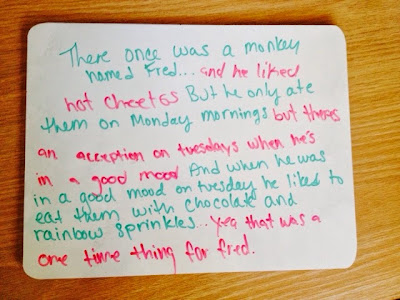 There once was a monkey
named Fred... and he liked
hot cheetos But he only ate
them on Monday mornings but theres
an acception on tuesdays when he's
in a good mood And when he was
in a good mood on tuesday he liked to
eat them with chocolate and
rainbow sprinkles... yea that was a
one time thing for fred.